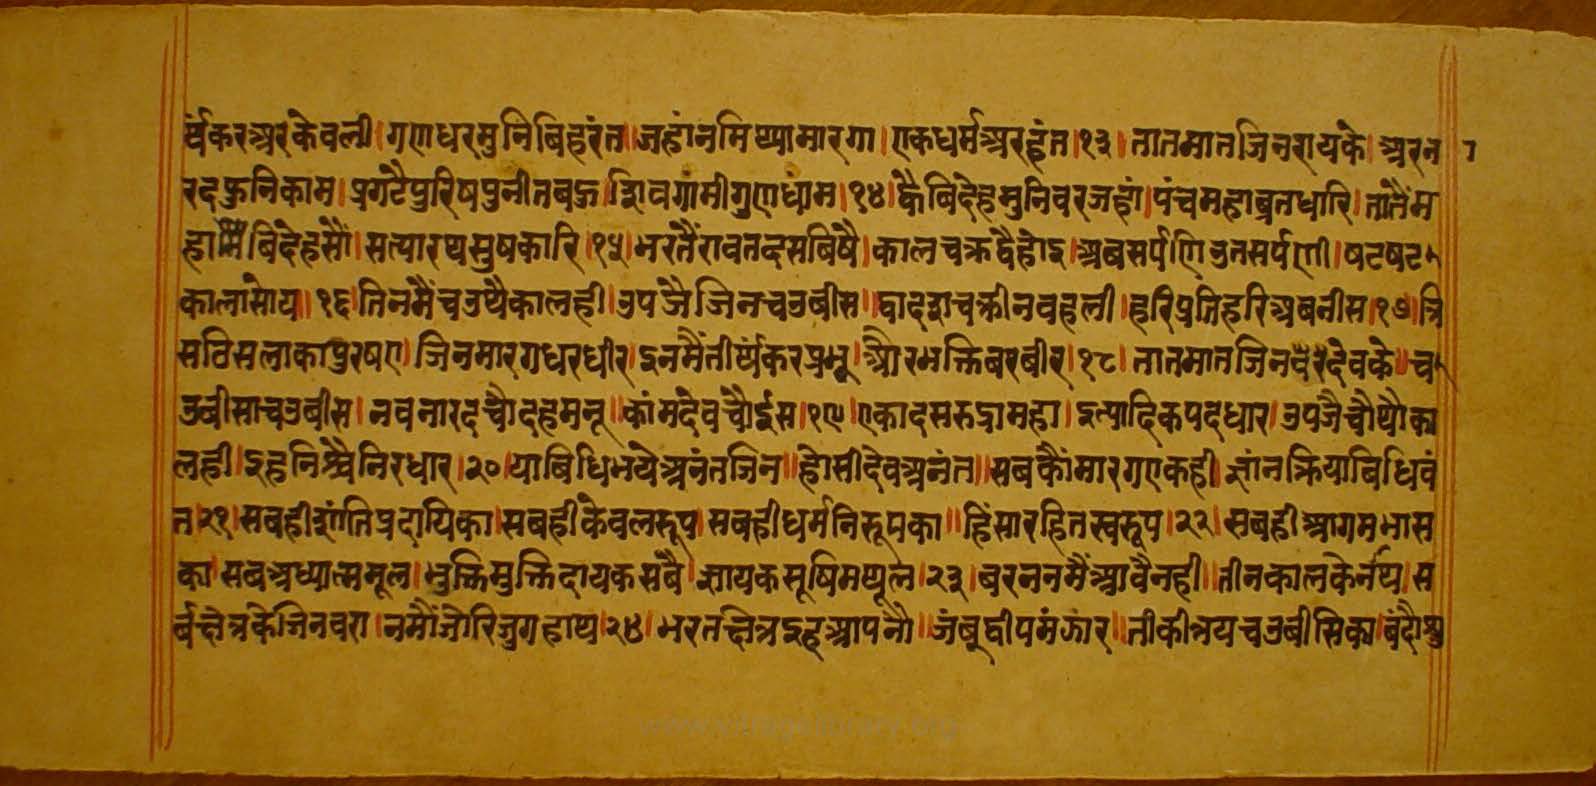 र्थंकर अर केवली। गणधर मुनि बिहरंत। जहां न मिथ्या मारगा। एक धर्म अरहंत। १३। तात मात जिनराय के। अर न
रद फुनि काम। प्रगटै पुरिष पुनीत बहु। शिवगांमी गुणधांम। १४। कै बिदेह मुनिवर जहां। पंच महाब्रत धारि। तातैं म
हा बिदेह सौं। सत्यारथ सुषकारि। १५। भरतैंरावत दस बिषै। काल चक्र द्वै होइ। अवसर्पणि उतसर्पणी। षट षट
काला सोय। १६। तिनमैं चउथै काल ही। उपजै जिन चउबीस। द्वादश चक्री नव हली। हरि प्रतिहरि अवनीस। १७। त्रि
सठि सलाका पुरष ए। जिन मारग धर धीर। इनमैं तीर्थंकर प्रभू। और भक्ति बर बीर। १८। तात मात जिनवर देव के। च
उबीसा चउबीस। नव नारद चौदह मनू। कांमदेव चौईस। १९। एकादस रुद्रा महा। इत्यादिक पद धार। उपजै चौथौ का
ल ही। इह निश्चै निरधार। २०। या बिधि भये अनंत जिन। होसी देव अनंत। सबकौं मारग एक ही। ज्ञांन क्रिया बिधिवं
त। २१। सबही शांति प्रदायिका। सबही केवल रूप। सबही धर्म निरूपका। हिंसा रहित स्वरूप। २२। सबही आगम भास
का। सब अध्यात्म मूल। भुक्ति मुक्ति दायक सबै। ज्ञायक सूषिम थूल। २३। बरनन मैं आवै नही। तीन काल के नथ। स
र्ब क्षेत्र के जिनवरा। नमौं जोरि जुग हाथ। २४। भरत क्षेत्र इह आपनौ। जंबूद्वीप मंझार। ती की त्रय चउबीसिका। बंदौ श्रु
www.vitragelibrary.org